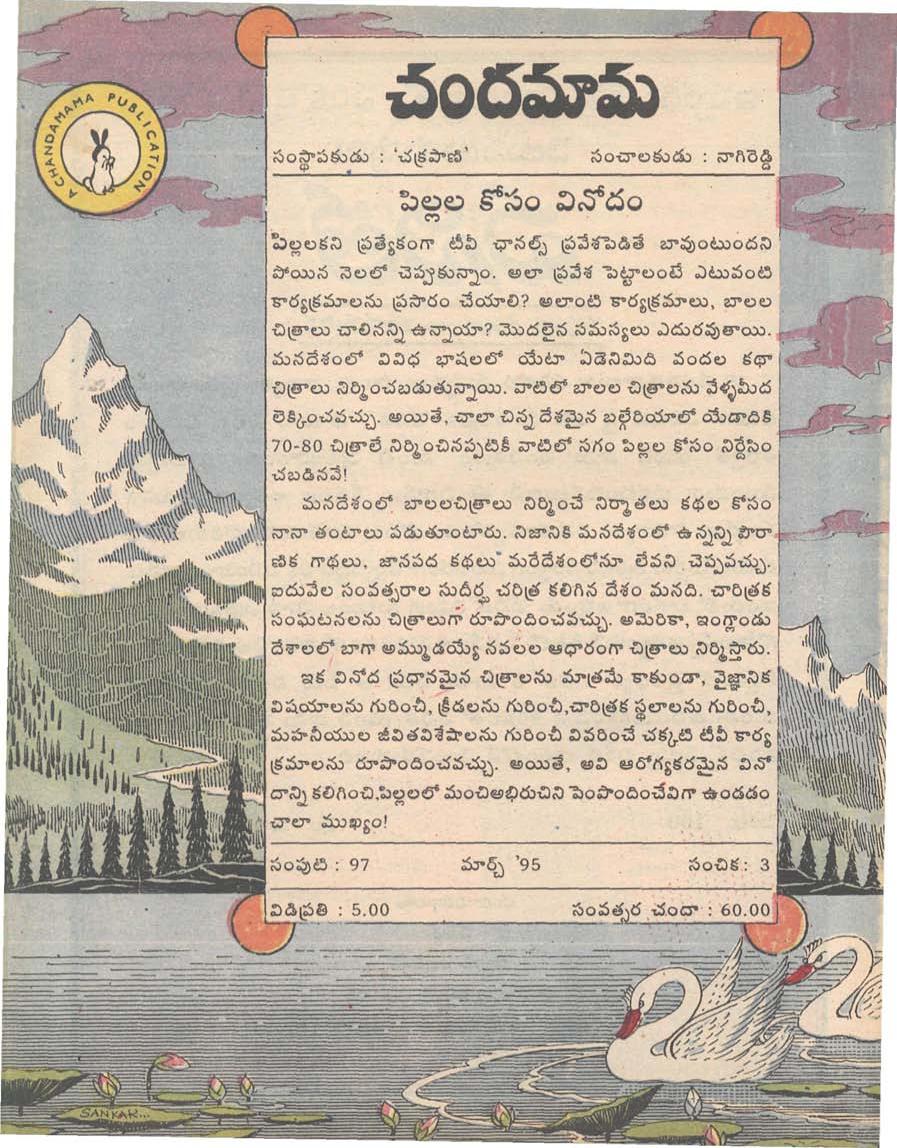 A CHANDAMAMA PUBLICATION
చందమామ
సంస్థాపకుడు : 'చక్రపాణి' సంచాలకుడు : నాగిరెడ్డి
పిల్లల కోసం వినోదం
పిల్లలకని ప్రత్యేకంగా టీవీ ఛానల్స్ ప్రవేశపెడితే బావుంటుందని
పోయిన నెలలో చెప్పుకున్నాం. అలా ప్రవేశ పెట్టాలంటే ఎటువంటి
కార్యక్రమాలను ప్రసారం చేయాలి? అలాంటి కార్యక్రమాలు, బాలల
చిత్రాలు చాలినన్ని ఉన్నాయా? మొదలైన సమస్యలు ఎదురవుతాయి.
మనదేశంలో వివిధ భాషలలో యేటా ఏడెనిమిది వందల కథా
చిత్రాలు నిర్మించబడుతున్నాయి. వాటిలో బాలల చిత్రాలను వేళ్ళమీద
లెక్కించవచ్చు. అయితే, చాలా చిన్న దేశమైన బల్గేరియాలో యేడాదికి
70-80 చిత్రాలే నిర్మించినప్పటికీ వాటిలో సగం పిల్లల కోసం నిర్దేసిం
చబడినవే!
మనదేశంలో బాలలచిత్రాలు నిర్మించే నిర్మాతలు కథల కోసం
నానా తంటాలు పడుతూంటారు. నిజానికి మనదేశంలో ఉన్నన్ని పౌరా
ణిక గాథలు, జానపద కథలు మరేదేశంలోనూ లేవని చెప్పవచ్చు.
ఐదువేల సంవత్సరాల సుదీర్ఘ చరిత్ర కలిగిన దేశం మనది. చారిత్రక
సంఘటనలను చిత్రాలుగా రూపొందించవచ్చు. అమెరికా, ఇంగ్లాండు
దేశాలలో బాగా అమ్ముడయ్యే నవలల ఆధారంగా చిత్రాలు నిర్మిస్తారు.
ఇక వినోద ప్రధానమైన చిత్రాలను మాత్రమే కాకుండా, వైజ్ఞానిక
విషయాలను గురించీ, క్రీడలను గురించీ,చారిత్రక స్థలాలను గురించీ,
మహనీయుల జీవితవిశేషాలను గురించీ వివరించే చక్కటి టీవీ కార్య
క్రమాలను రూపొందించవచ్చు. అయితే, అవి ఆరోగ్యకరమైన వినో
దాన్ని కలిగించి,పిల్లలలో మంచిఅభిరుచిని పెంపొందించేవిగా ఉండడం
చాలా ముఖ్యం!
సంపుటి : 97 మార్చ్ '95 సంచిక: 3
విడిప్రతి : 5.00 సంవత్సర చందా : 60.00
SANKAR...